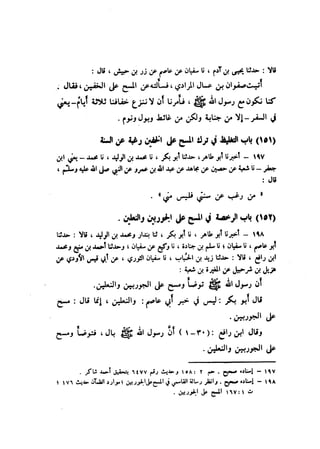 قالا : حدثنا يحيى بن آدم ، نا سفيان عن عاصم عن زر بن حبيش ، قال :
أتيت صفوان بن عسال المرادي ، فسألته عن المسح على الخفين ، فقال .
كنا نكون مع رسول الله ﷺ ، فأمرنا أن لا ننزع خفافنا ثلاثة أيام – يعني
في السفر – إلا من جنابة ولكن من غائط وبول ونوم .
(١٥١) باب التغليظ في ترك المسح على الخفين رغبة عن السنة
١٩٧ – أخبرنا أبو طاهر ، حدثنا أبو بكر ، نا محمد بن الوليد ، نا محمد – يعني ابن
جعفر – نا شعبة عن حصين عن مجاهد عن عبد الله بن عمرو عن النبي صلى الله عليه وسلم ،
قال :
« من رغب عن سنتي فليس مني » .
(١٥٢) باب الرخصة في المسح على الجوربين والنعلين .
١٩٨ – أخبرنا أبو طاهر ، نا أبو بكر ، ثنا بندار ومحمد بن الوليد ، قالا : حدثنا
أبو عاصم ، نا سفيان ، نا سلم بن جنادة ، نا وكيع عن سفيان ، وحدثنا أحمد بن منيع ومحمد
ابن رافع ، قالا : حدثنا زيد بن الحباب ، نا سفيان الثوري ، عن أبي قيس الأودي عن
هزيل بن شرحبيل عن المغيرة بن شعبة :
أن رسول الله ﷺ توضأ ومسح على الجوربين والنعلين.
قال أبو بكر : ليس في خبر أبي عاصم : والنعلين ، إنما قال : مسح
على الجوربين .
وقال ابن رافع : (٣٠–١) أن رسول الله ﷺ بال ، فتوضأ ومسح
على الجوربين والنعلين .
١٩٧ – إسناده صحيح . حم ٢ : ١٥٨ وحديث رقم ٦٤٧٧ بتحقيق أحمد شاكر .
١٩٨ – إسناده صحيح . وانظر رسالة القاسمي في المسح على الجوربين ؛ موارد الظمآن حديث ١٧٦ ؛
ت ١ : ١٦٧ المسح على الجوربين .